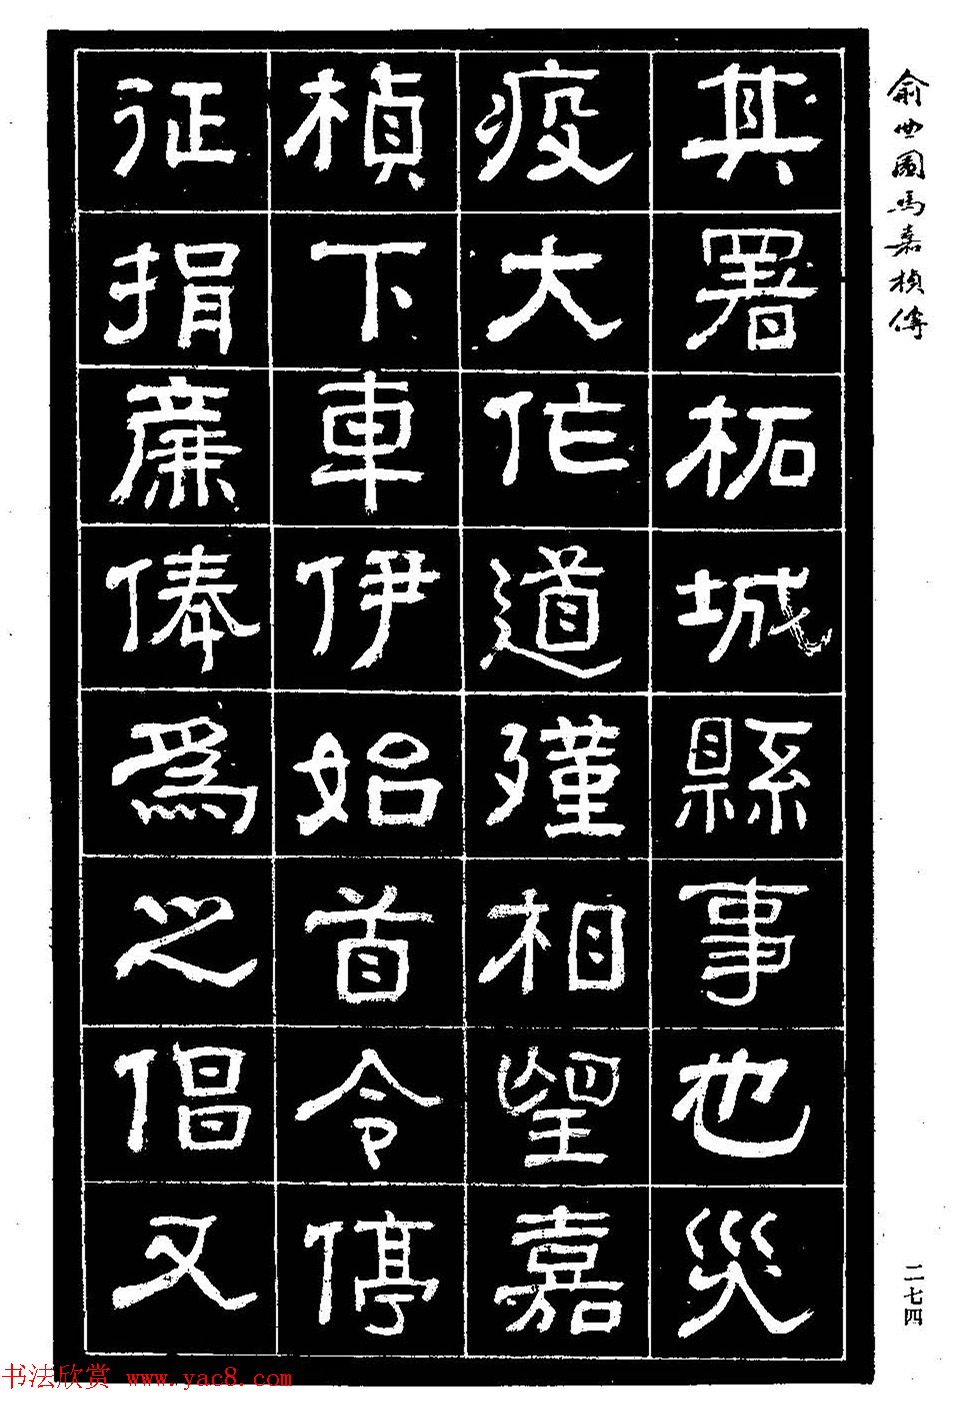 其署柘城縣事也災
疫大作道殣相望嘉
楨下車伊始首令停
征捐廉俸爲之倡又
俞曲園馬嘉楨傳
二七四
书法欣赏 www.yac8.com